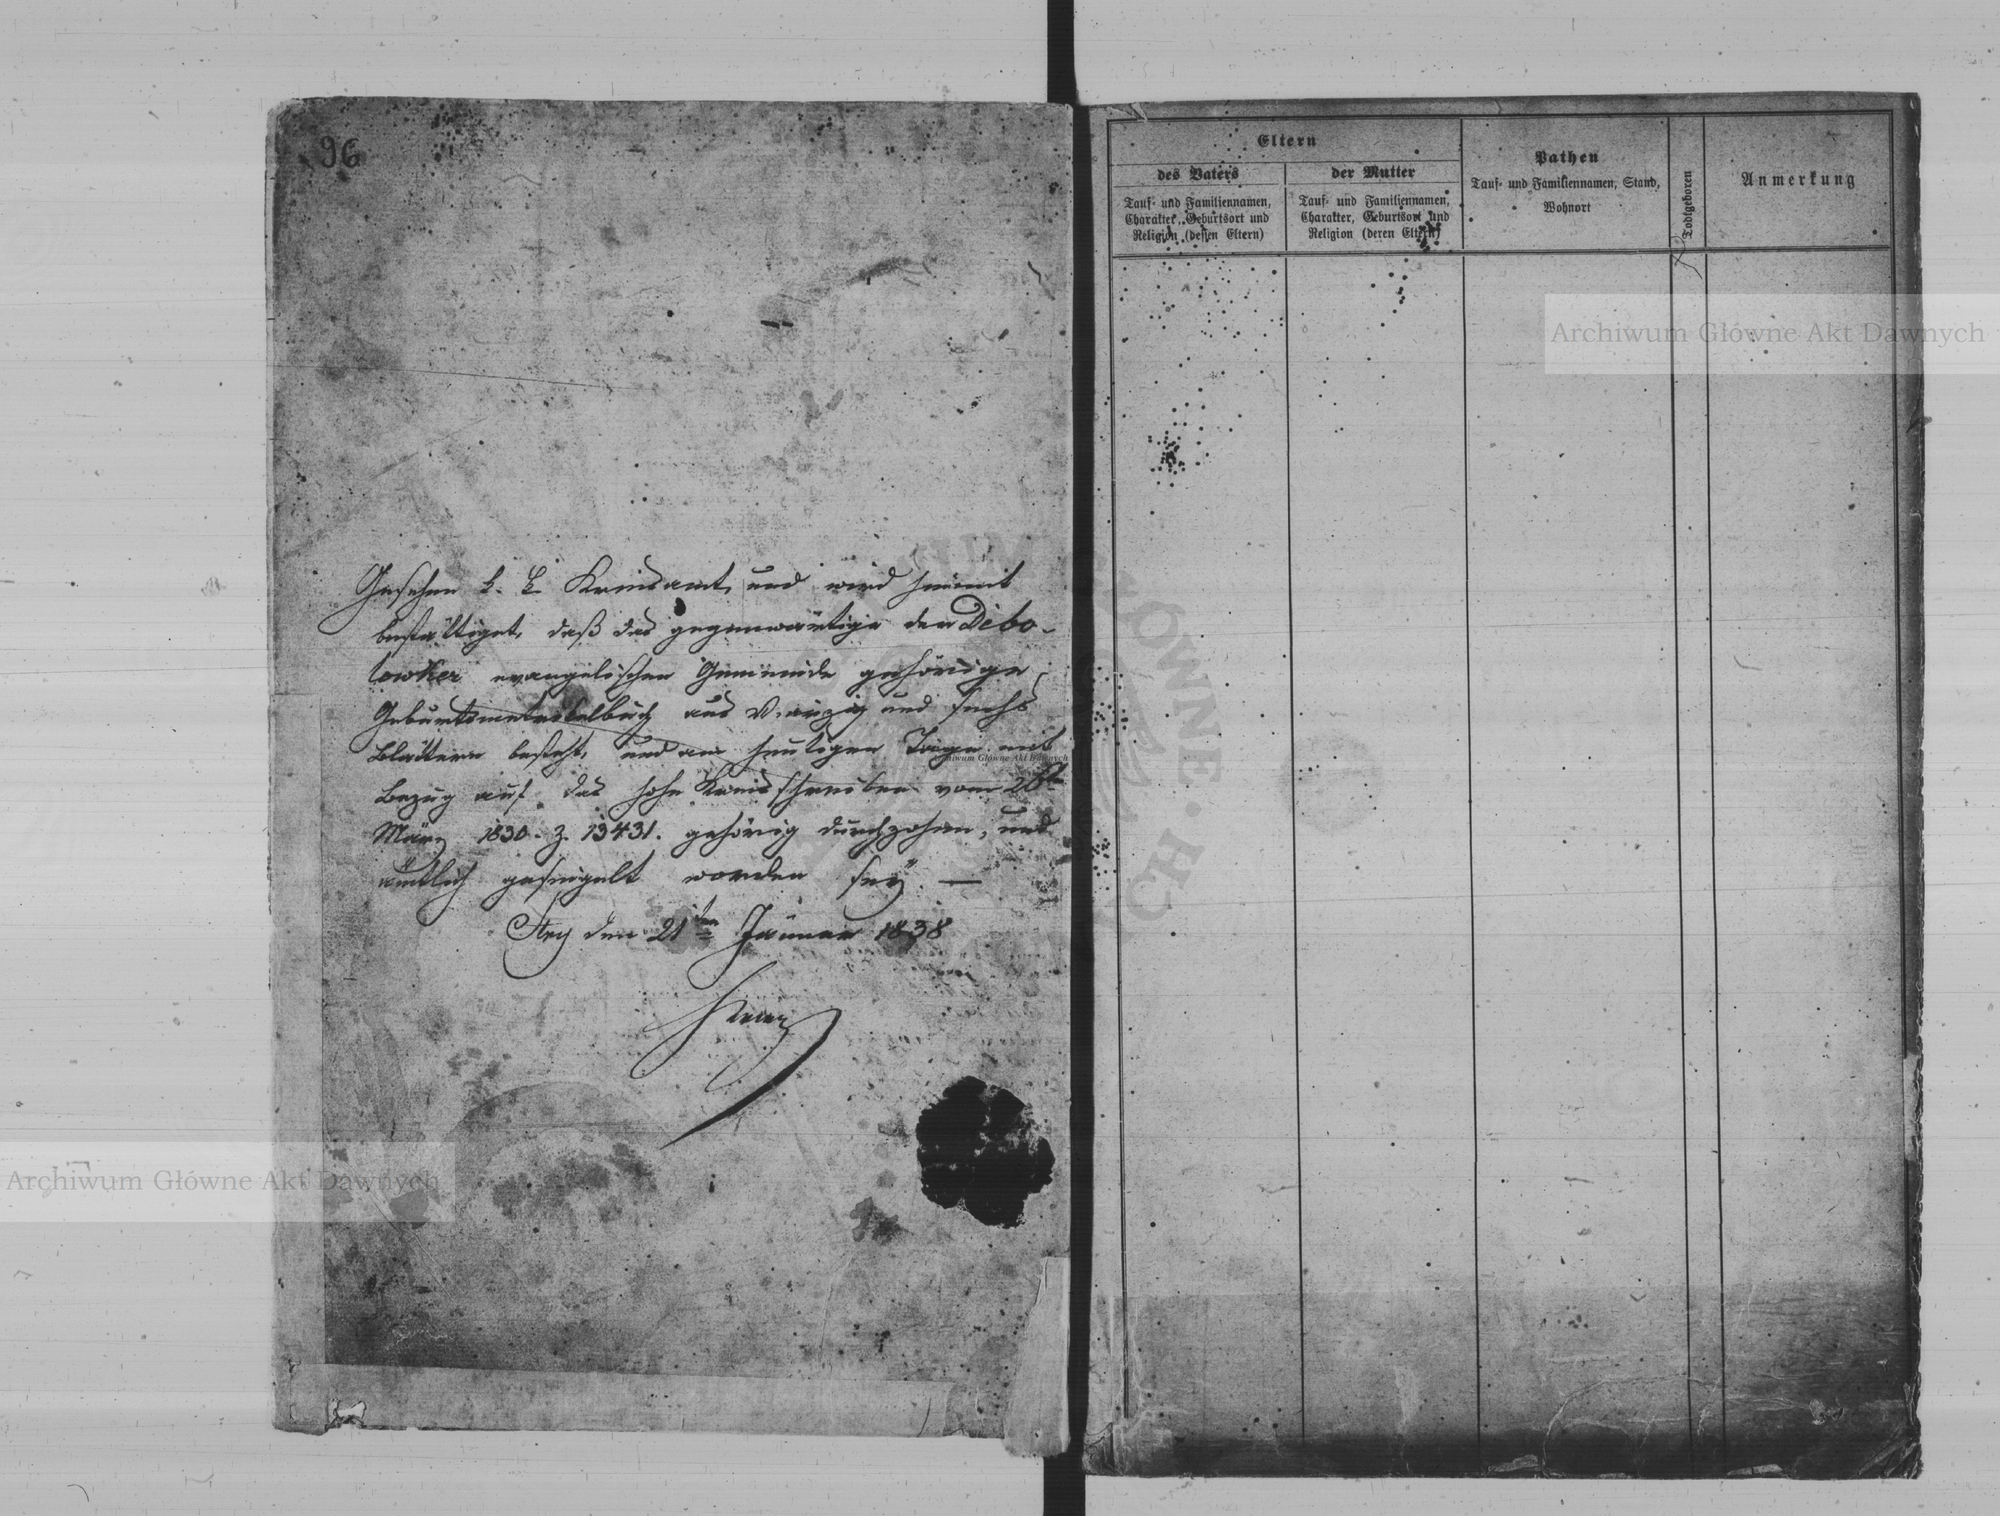 96
Gesehen k. k. Kreisamt, und wird hiemit
bestättiget, daß das gegenwärtige der Debo-
lowker evangelischen Gemeinde gehörige
Geburtsmatrikelbuch aus Vierzig und sechs
Blättern besteht, und am heutigen Tage mit
Bezug auf das hohe Kreisschreiben vom
März 1830. Z. 13431. gehörig durchzohen, und
ämtlich gesiegelt worden seÿ. —
Stry den 21ten Jänner 1838
Eltern
des Vaters
Tauf- und Familiennamen,
Charakter, Geburtsort und
Religion (dessen Eltern)
der Mutter
Tauf- und Familiennamen,
Charakter, Geburtsort und
Religion (deren Eltern)
Pathen
Tauf- und Familiennamen, Stand,
Wohnort
Todtgeboren
Anmerkung
Archiwum Główne Akt Dawnych
Archiwum Główne Akt Dawnych
Archiwum Główne Akt Dawnych